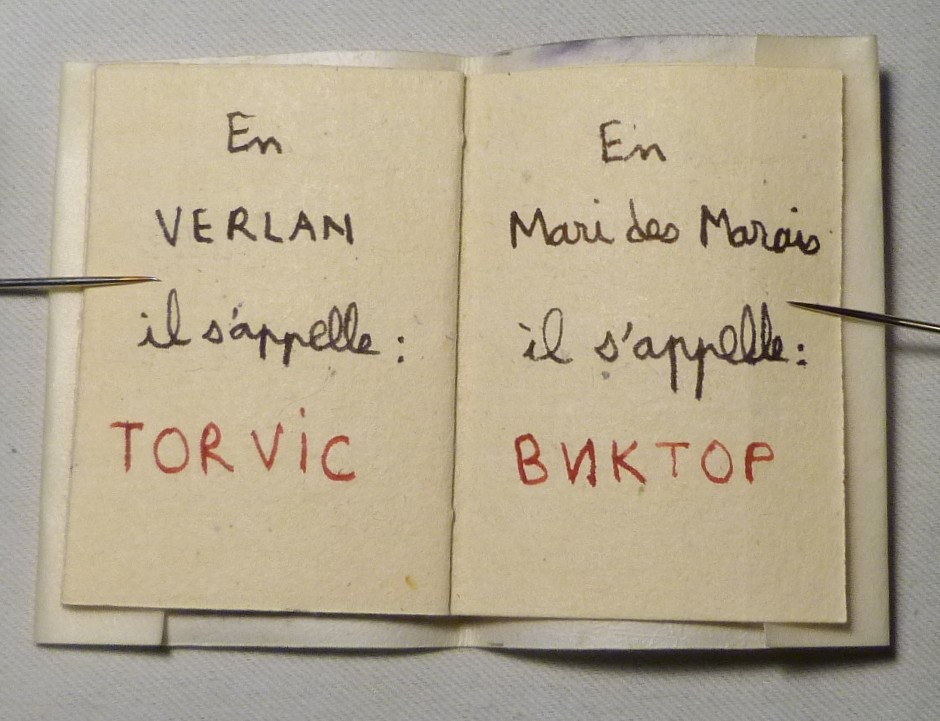 En
VERLAN
il s'appelle :
TORViC
En
Mari des Marais
il s'appelle :
ВИКТОР